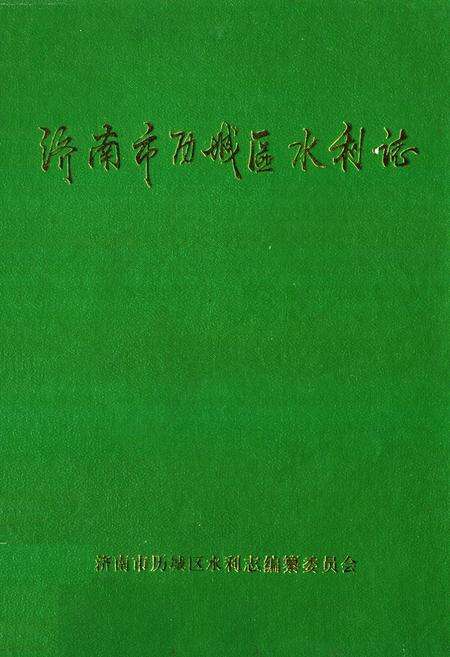 济南市历城區水利誌
济南市历城区水利志编纂委员会